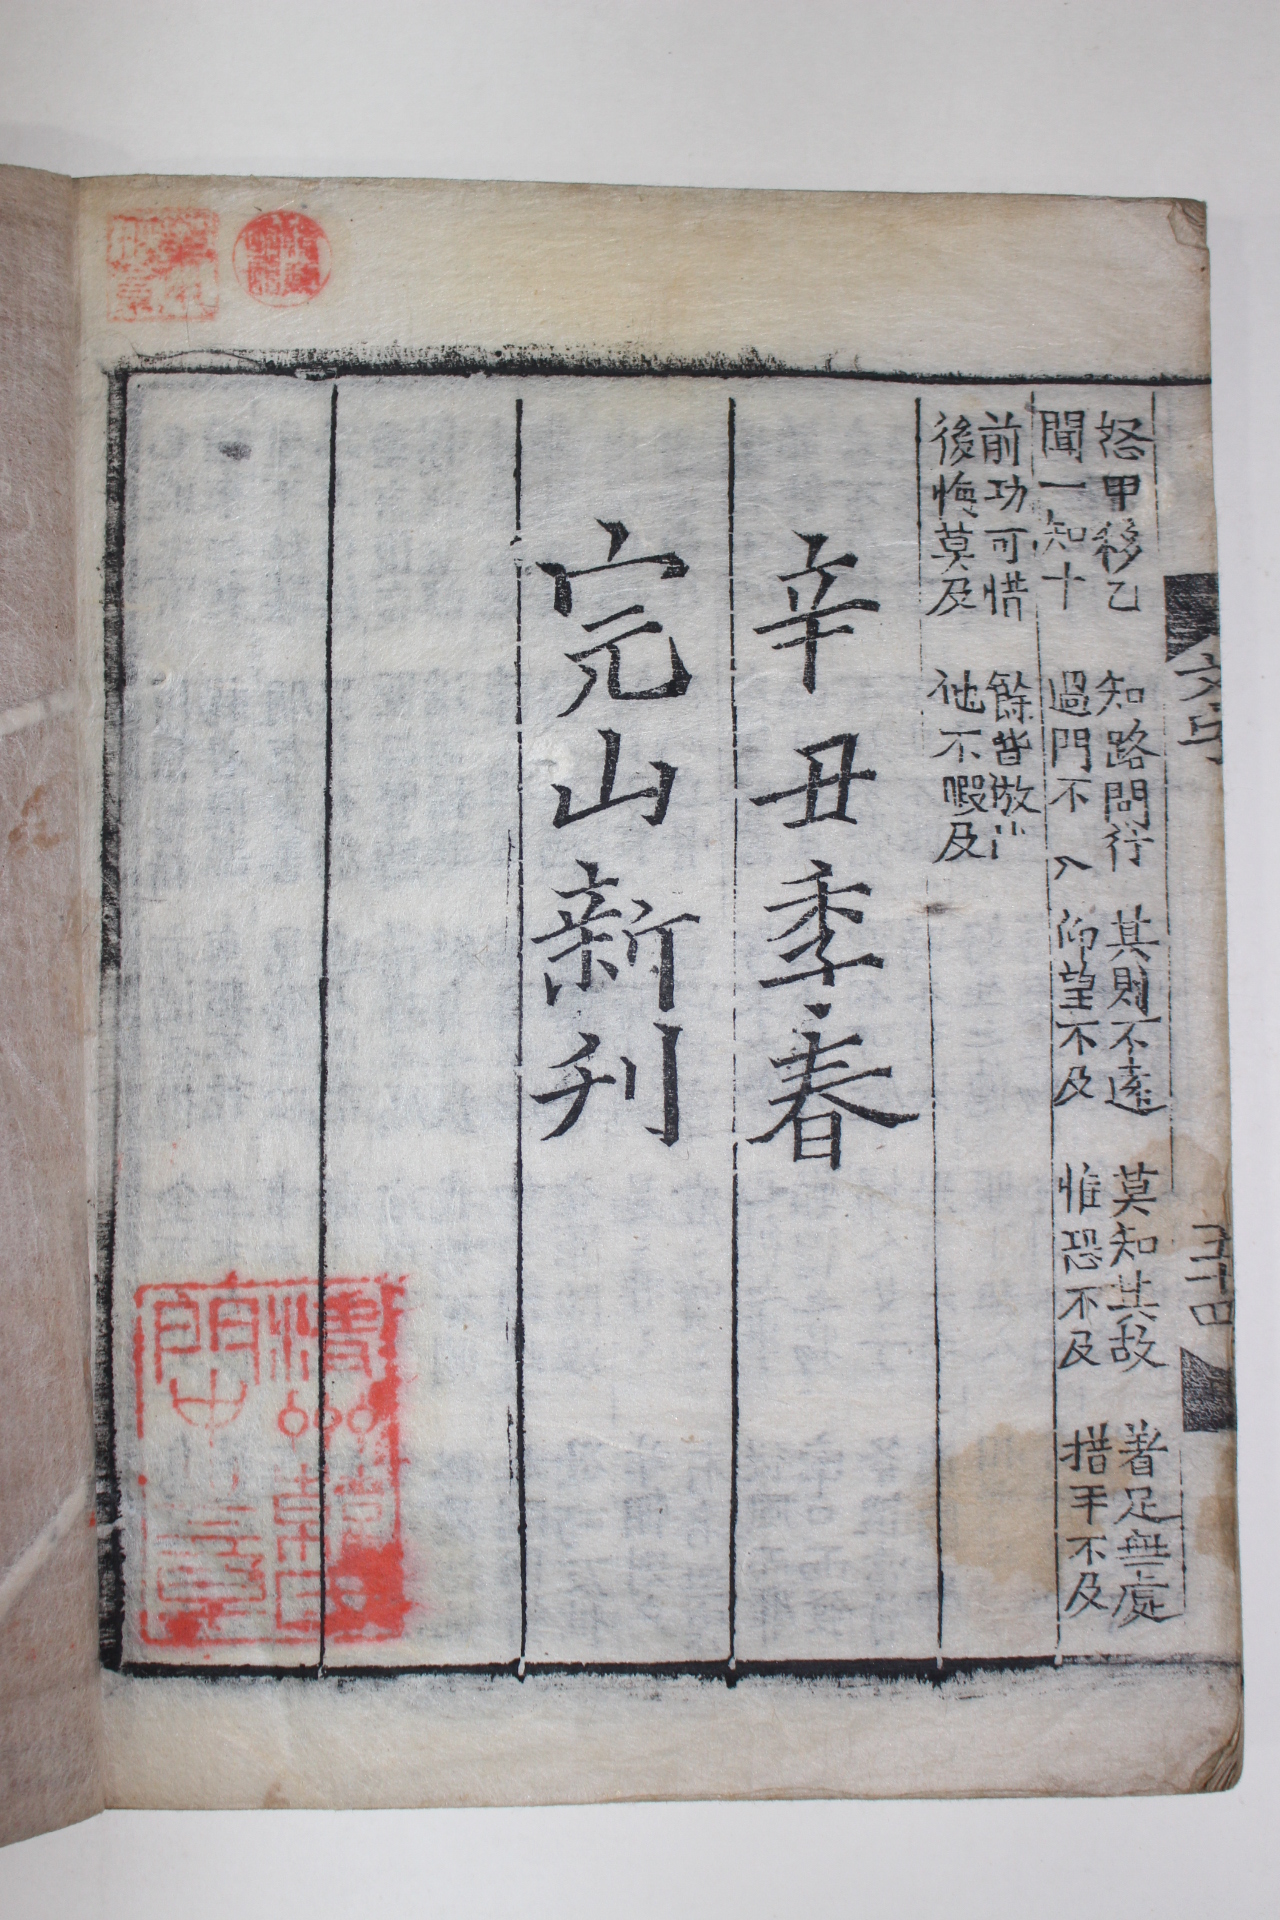 文字
五十四
怒甲移乙 知路問行 其則不遠 莫知其故 著足無處
聞一知十 過門不入 仰望不及 惟恐不及 措手不及
前功可惜 餘皆倣此
後悔莫及 他不暇及
辛丑季春
完山新刊